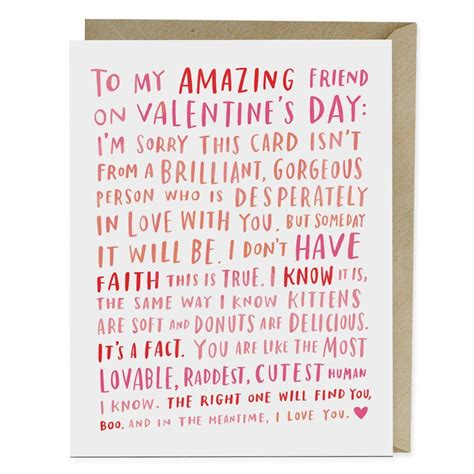 TO MY AMAZING FRIEND
ON VALENTINE'S DAY:
I'M SORRY THIS CARD ISN'T
FROM A BRILLIANT, GORGEOUS
PERSON WHO IS DESPERATELY
IN LOVE WITH YOU. BUT SOMEDAY
IT WILL BE. I DON'T HAVE
FAITH THIS IS TRUE. I KNOW IT IS,
THE SAME WAY I KNOW KITTENS
ARE SOFT AND DONUTS ARE DELICIOUS.
IT'S A FACT. YOU ARE LIKE THE MOST
LOVABLE, RADDEST, CUTEST HUMAN
I KNOW. THE RIGHT ONE WILL FIND YOU,
BOO. AND IN THE MEANTIME, I LOVE YOU.